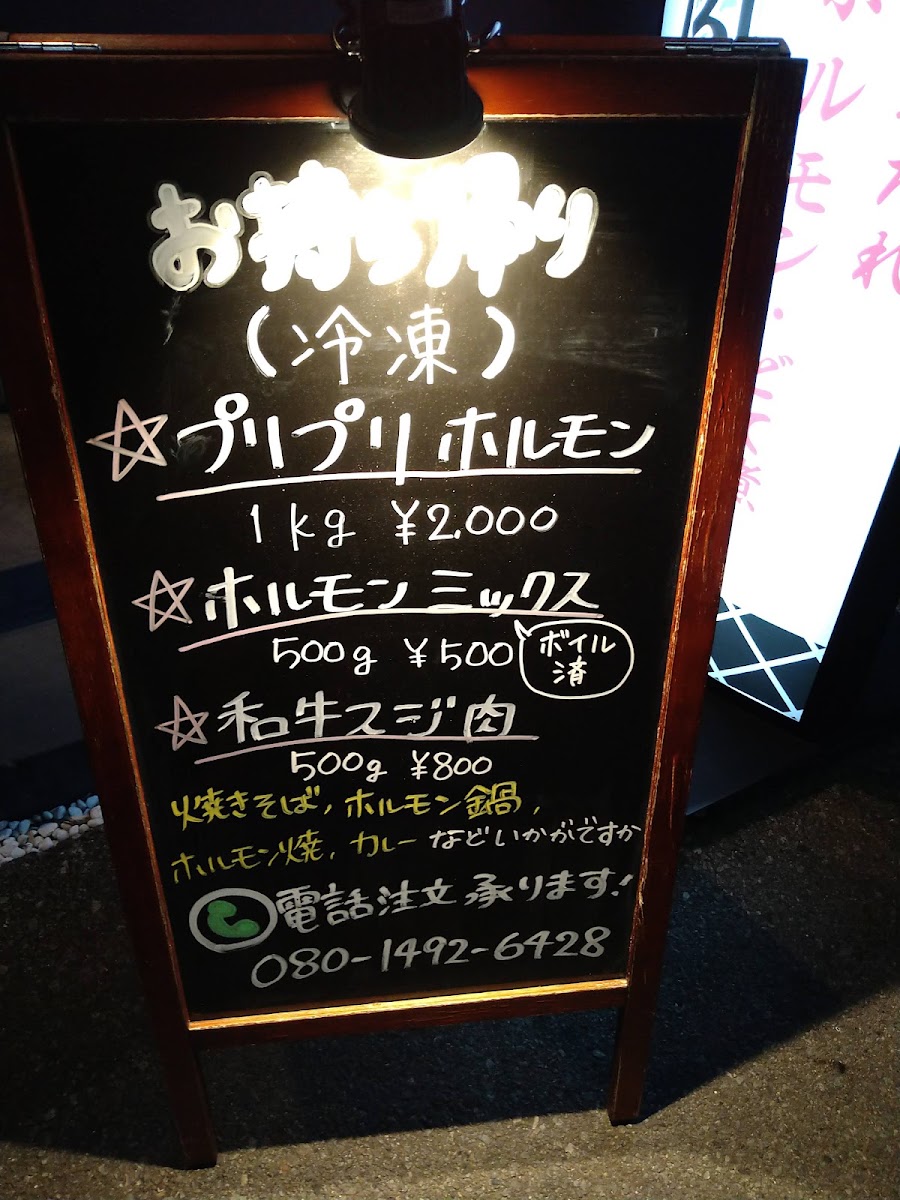 お持ち帰り
(冷凍)
☆プリプリホルモン
1kg ¥2.000
☆ホルモンミックス
500g ¥500
ボイル
済
☆和牛スジ肉
500g ¥800
焼きそば, ホルモン鍋,
ホルモン焼, カレー などいかがですか
電話注文承ります!
080-1492-6428
ホルモン・どて煮